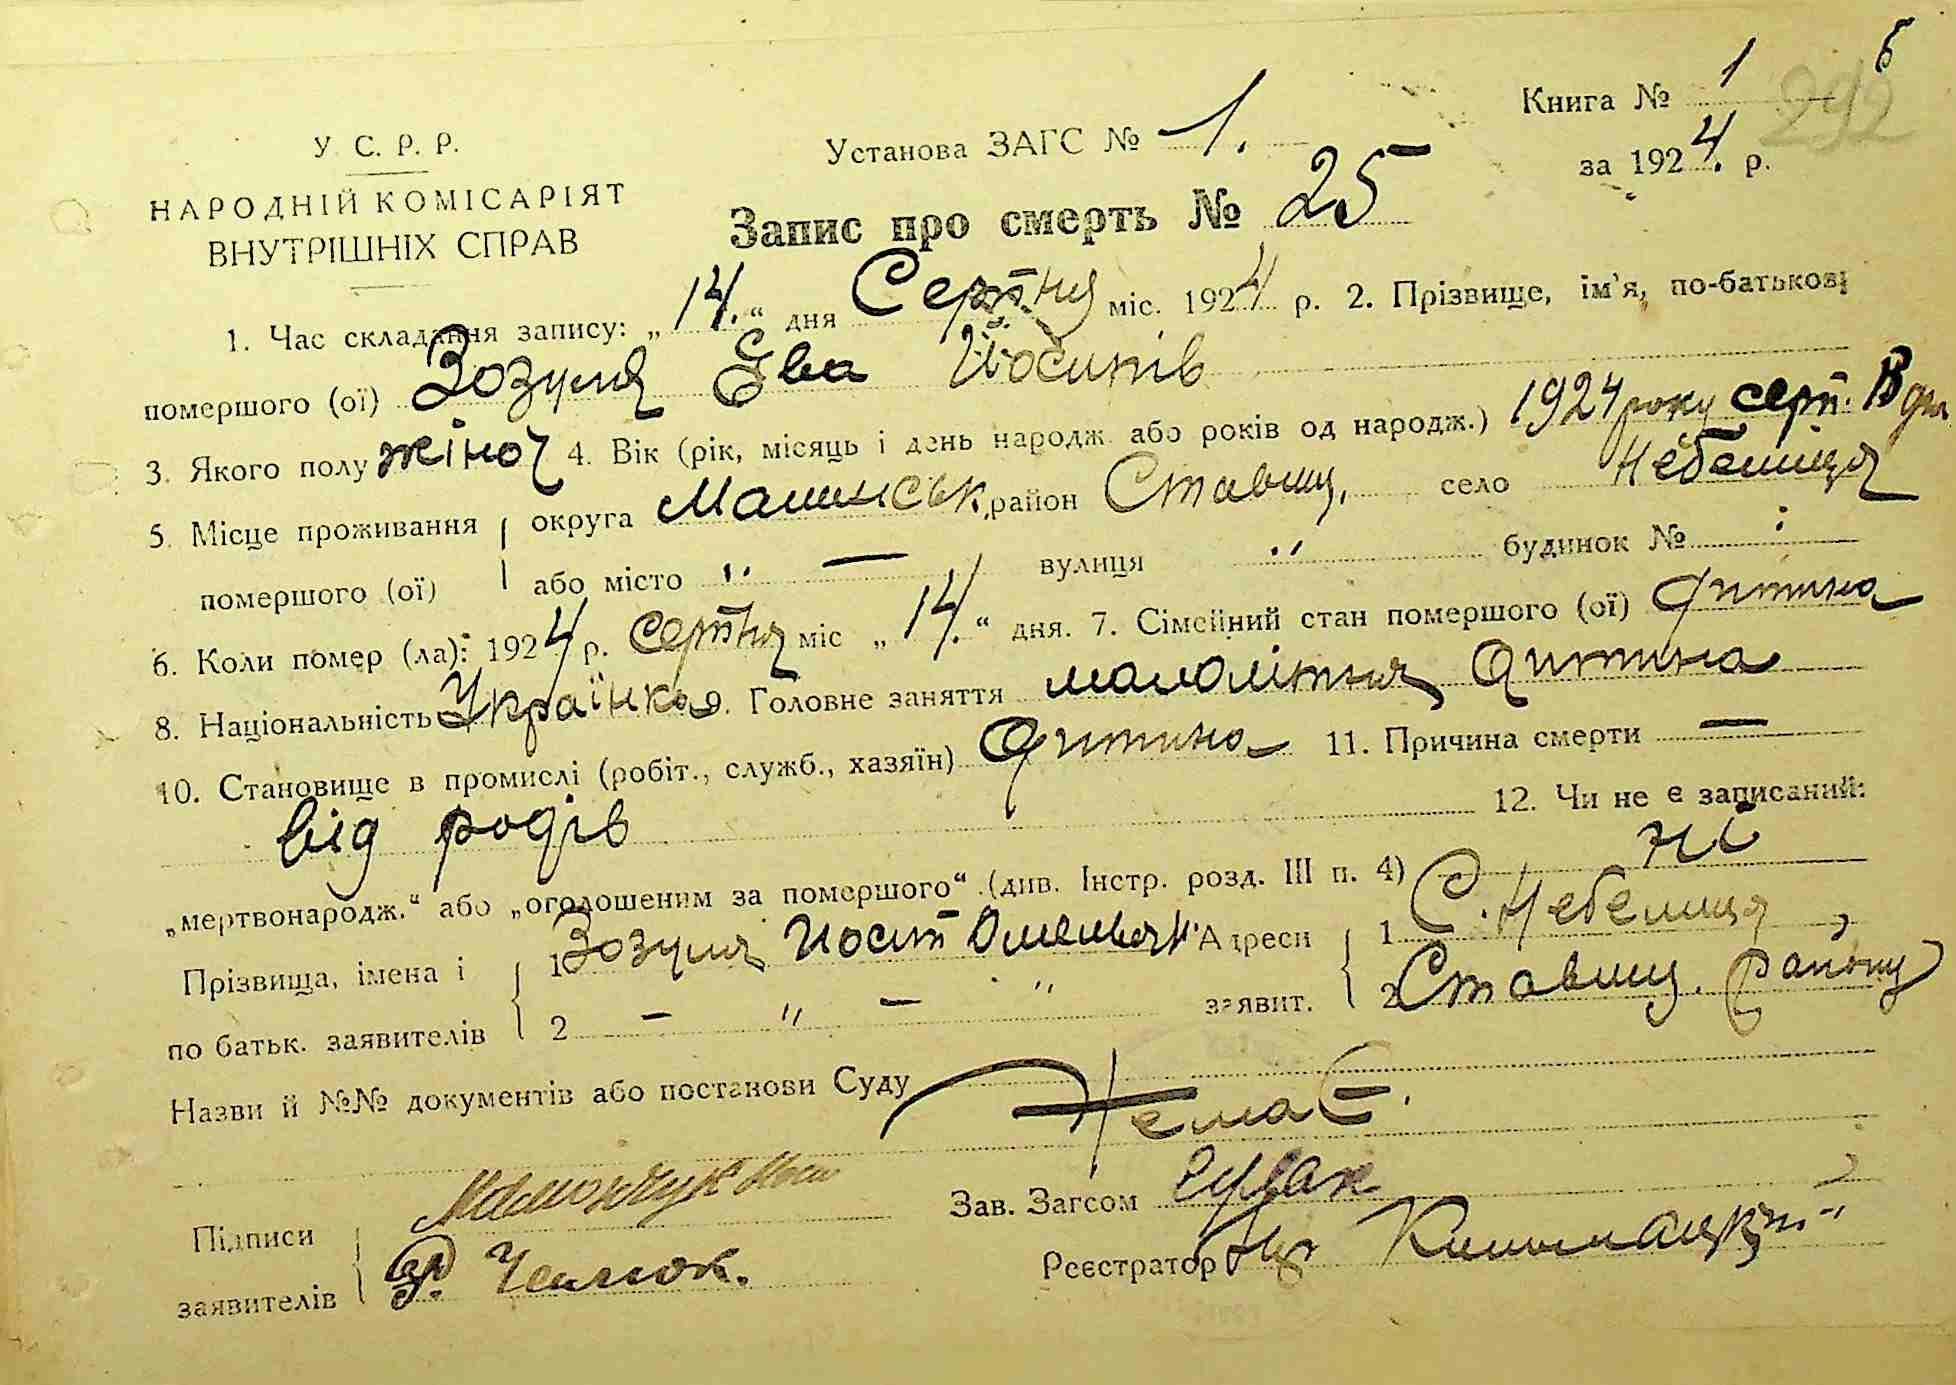 б
Книга № 1 292
У. С. Р. Р.
Установа ЗАГС № 1.
за 1924. р.
НАРОДНІЙ КОМІСАРІЯТ
ВНУТРІШНІХ СПРАВ
Запис про смерть № 25
1. Час складання запису: „14.“ дня Серпня міс. 1924 р. 2. Прізвище, ім'я, по-батькові
помершого (ої) Зозуля Єва Йосипів
3. Якого полу жіноч 4. Вік (рік, місяць і день народж. або років од народж.) 1924 року серп. 13 дня
5. Місце проживання округа район Ставищ. село Небелиця
помершого (ої) або місто " — вулиця " будинок №
6. Коли помер (ла): 1924 р. серпня міс „14.“ дня. 7. Сімейний стан помершого (ої) дитина
8. Національність Українка 9. Головне заняття малолітня дитина
10. Становище в промислі (робіт., служб., хазяїн) дитина 11. Причина смерти —
від родів 12. Чи не є записаний:
„мертвонародж.“ або „оголошеним за помершого“ (див. Інстр. розд. III п. 4) ні
Прізвища, імена і 1 Зозуля Йосип Омелья Адреси 1 С. Небелиця,
по батьк. заявителів 2 — " — " заявит. 2 Ставищ. району
Назви й №№ документів або постанови Суду Немає.
Підписи
Зав. Загсом
заявителів
Реєстратор